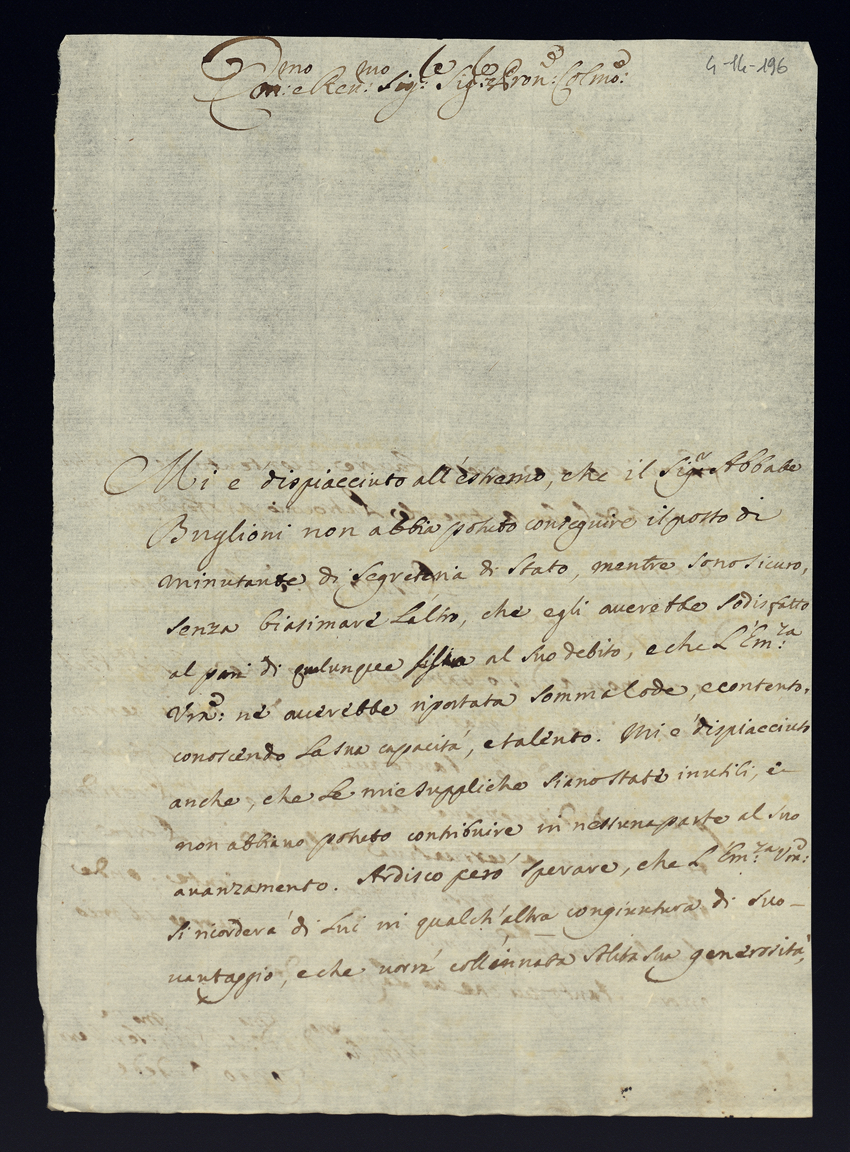 4-14-196
Em:mo e Reu:mo Sig:re Sig:re Pron:e Colmo:
Mi e dispiacciuto all'estremo, che il Sig:r Abbate
Buglioni non abbia potuto conseguire il posto di
minutante di Segreteria di Stato, mentre sono sicuro,
senza biasimare L'altro, che egli auerebbe sodisfatto
al pari di qulunque al suo debito, e che L'Em:za
Vrã: ne auerebbe riportata somma lode, e contento,
conoscendo La sua capacità, e talento. Mi e' dispiacciuto
anche, che Le mie suppliche siano state inutili, e
non abbiano potuto contribuire in nessuna parte al suo
auanzamento. Ardisco però sperare, che L'Em:za Vrã:
si ricorderà di Lui in qualch'altra congiuntura di suo
uantaggio, e che uorrà coll'innata solita sua generosità,